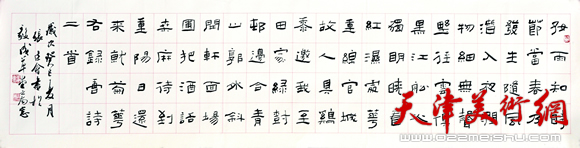 好雨知時
節當春乃
發生隨風
潛入夜潤
物細無聲
野徑雲俱
黑江船火
獨明曉看
紅濕處華
重錦官城
故人具雞
黍邀我至
田家綠樹
邨邊合青
山郭外斜
開軒面場
圃把酒話
桑麻待到
重陽日還
來就菊華
右錄唐詩
二首
歲次癸巳夏月
張建會書於
天津美術網
www.022meishu.com